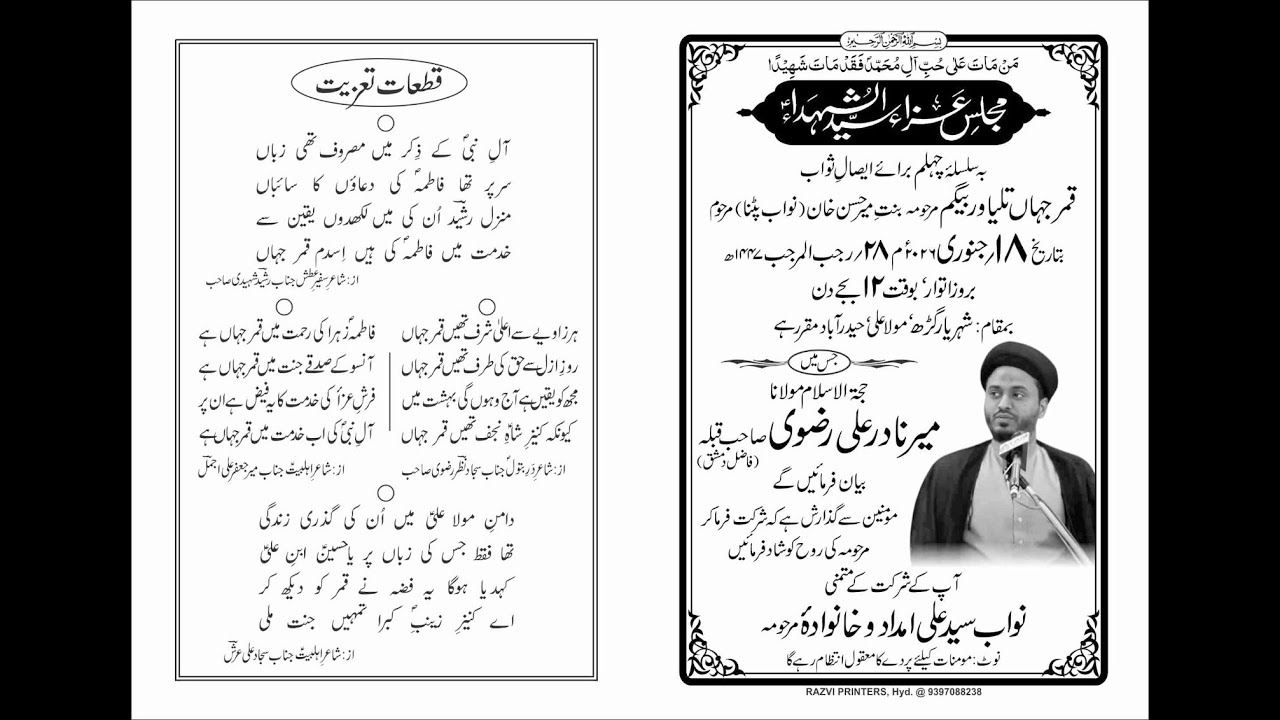 بسم اللہ الرحمن الرحیم
مَنْ مَاتَ عَلیٰ حُبِّ آلِ مُحَمَّدٍ فَقَدْ مَاتَ شَهِيْدًا
مجلسِ عزاء سیّد الشہداءؑ
بہ سلسلۂ چہلم برائے ایصالِ ثواب
قمر جہاں تلیاور بیگم مرحومہ بنتِ میر حسن خان (نواب پٹنا) مرحوم
بتاریخ ۱۸؍ جنوری ۲۰۲۶ء م ۲۸؍ رجب المرجب ۱۴۴۷ھ
بروز اتوار، بوقت ۱۲ بجے دن
بمقام: شہریار گڑھ، مولا علیؑ حیدرآباد مقرر ہے
جس میں
حجۃ الاسلام مولانا
میر نادر علی رضوی صاحب قبلہ
(فاضل دمشق)
بیان فرمائیں گے
مومنین سے گذارش ہے کہ شرکت فرما کر
مرحومہ کی روح کو شاد فرمائیں
آپ کے شرکت کے متمنی
نواب سید علی امداد و خانوادۂ مرحومہ
نوٹ: مومنات کیلئے پردے کا معقول انتظام رہے گا
RAZVI PRINTERS, Hyd. @ 9397088238
قطعات تعزیت
آلِ نبیؐ کے ذِکر میں مصروف تھی زباں
سر پر تھا فاطمہؑ کی دعاؤں کا سائباں
منزل رشیدؔ اُن کی میں لکھدوں یقین سے
خدمت میں فاطمہؑ کی ہیں اِسدم قمر جہاں
از: شاعرِ سفیرِ عطش جناب رشیدؔ شہیدی صاحب
ہر زاویے سے اعلیٰ شرف تھیں قمر جہاں
روزِ ازل سے حق کی طرف تھیں قمر جہاں
مجھ کو یقیں ہے آج وہوں گی بہشت میں
کیونکہ کنیزِ شاہِ نجف تھیں قمر جہاں
از: شاعرِ درِ بتولؑ جناب سجاد نظرؔ رضوی صاحب
فاطمہؑ زہرا کی رحمت میں قمر جہاں ہے
آنسو کے صدقے جنت میں قمر جہاں ہے
فرشِ عزاؑ کی خدمت کا یہ فیض ہے ان پر
آلِ نبیؐ کی اب خدمت میں قمر جہاں ہے
از: شاعرِ اہلبیتؑ جناب میر جعفر علی اجملؔ
دامنِ مولا علیؑ میں اُن کی گذری زندگی
تھا فقط جس کی زباں پر یا حسینؑ ابنِ علیؑ
کہدیا ہوگا یہ فضہ نے قمر کو دیکھ کر
اے کنیزِ زینبؑ کبرا تمہیں جنت ملی
از: شاعرِ اہلبیتؑ جناب سجاد علی عرشؔ